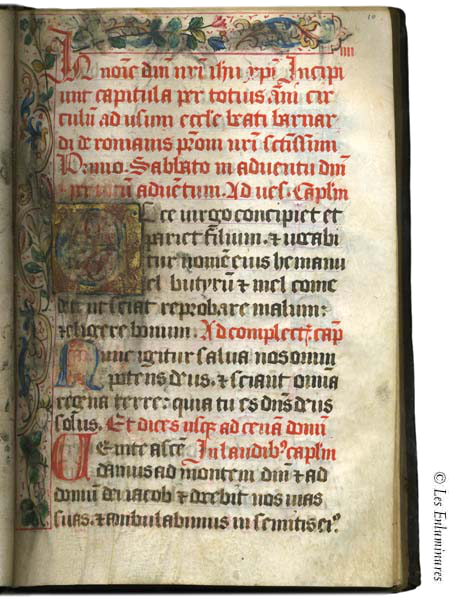 10
iiii
In noīe dīn nr̄i ihū xp̄i Incipi
unt capitula per totius ām cir
culū ad usum eccl̄e beati barnar
di de romanis prom nr̄i sctissim
Primo. Sabbato in adventu dīn
per totū adventum. Ad ves. Caplm
Ecce virgo concipiet et
pariet filium. & vocabi
tur nomē eius hemanu
el butyrū & mel come
det ut sciat reprobare malum:
& eligere bonum. Ad complect. cap̄
Nunc igitur salva nos omni
potens deus. & sciant omnia
regna terre: quia tu es dn̄s deus
solus. Et dices usq; ad cena domī
Venite ascē In laudib9 caplm
damus ad montem dīn & ad
domū dei iacob & docebit nos vias
suas. & ambulabimus in semitis ei9
© Les Enluminures